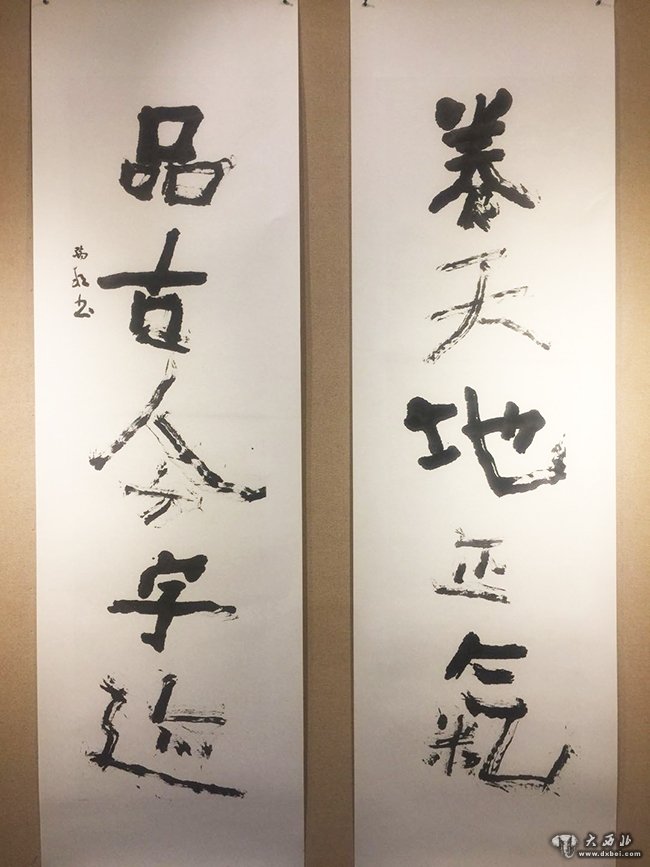 養天地正氣
品古今字迹
大西北
www.dxbei.com